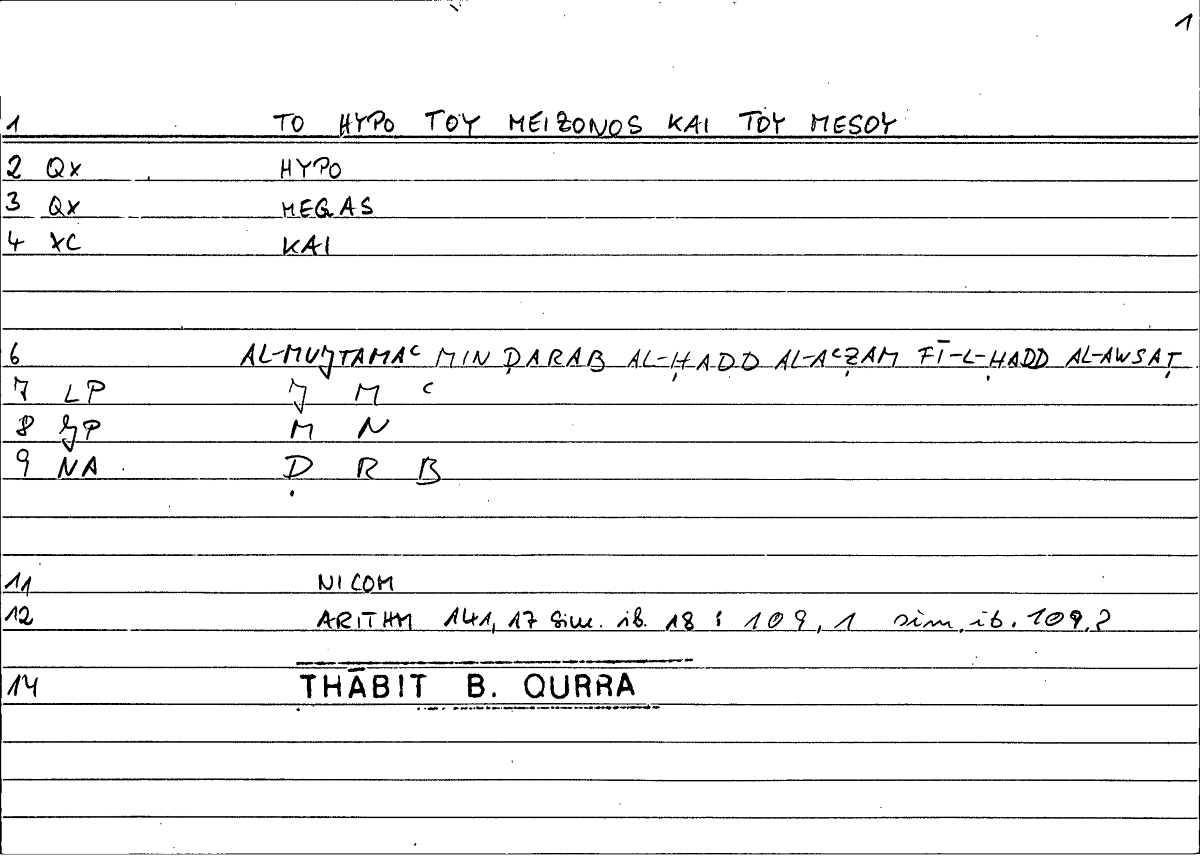 1
1 TO HYPO TOY MEIZONOS KAI TOY MESOY
2 QX HYPO
3 QX MEGAS
4 XC KAI
6 AL-MUJTAMAʿ MIN ḌARAB AL-ḤADD AL-AʿẒAM FĪ-L-ḤADD AL-AWSAṬ
7 LP J M ʿ
8 JP M N
9 NA Ḍ R B
11 NICOM
12 ARITHM 141, 17 sim. ib. 18 : 109, 1 sim. ib. 109, 2
14 THĀBIT B. QURRA